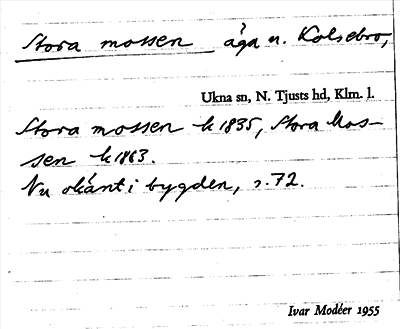 Stora mossen äga n. Kolsebro,
Ukna sn, N. Tjusts hd, Klm. l.
Stora mossen k 1835, Stora Mos-
sen k 1863.
Nu okänt i bygden, s. 72.
Ivar Modéer 1955